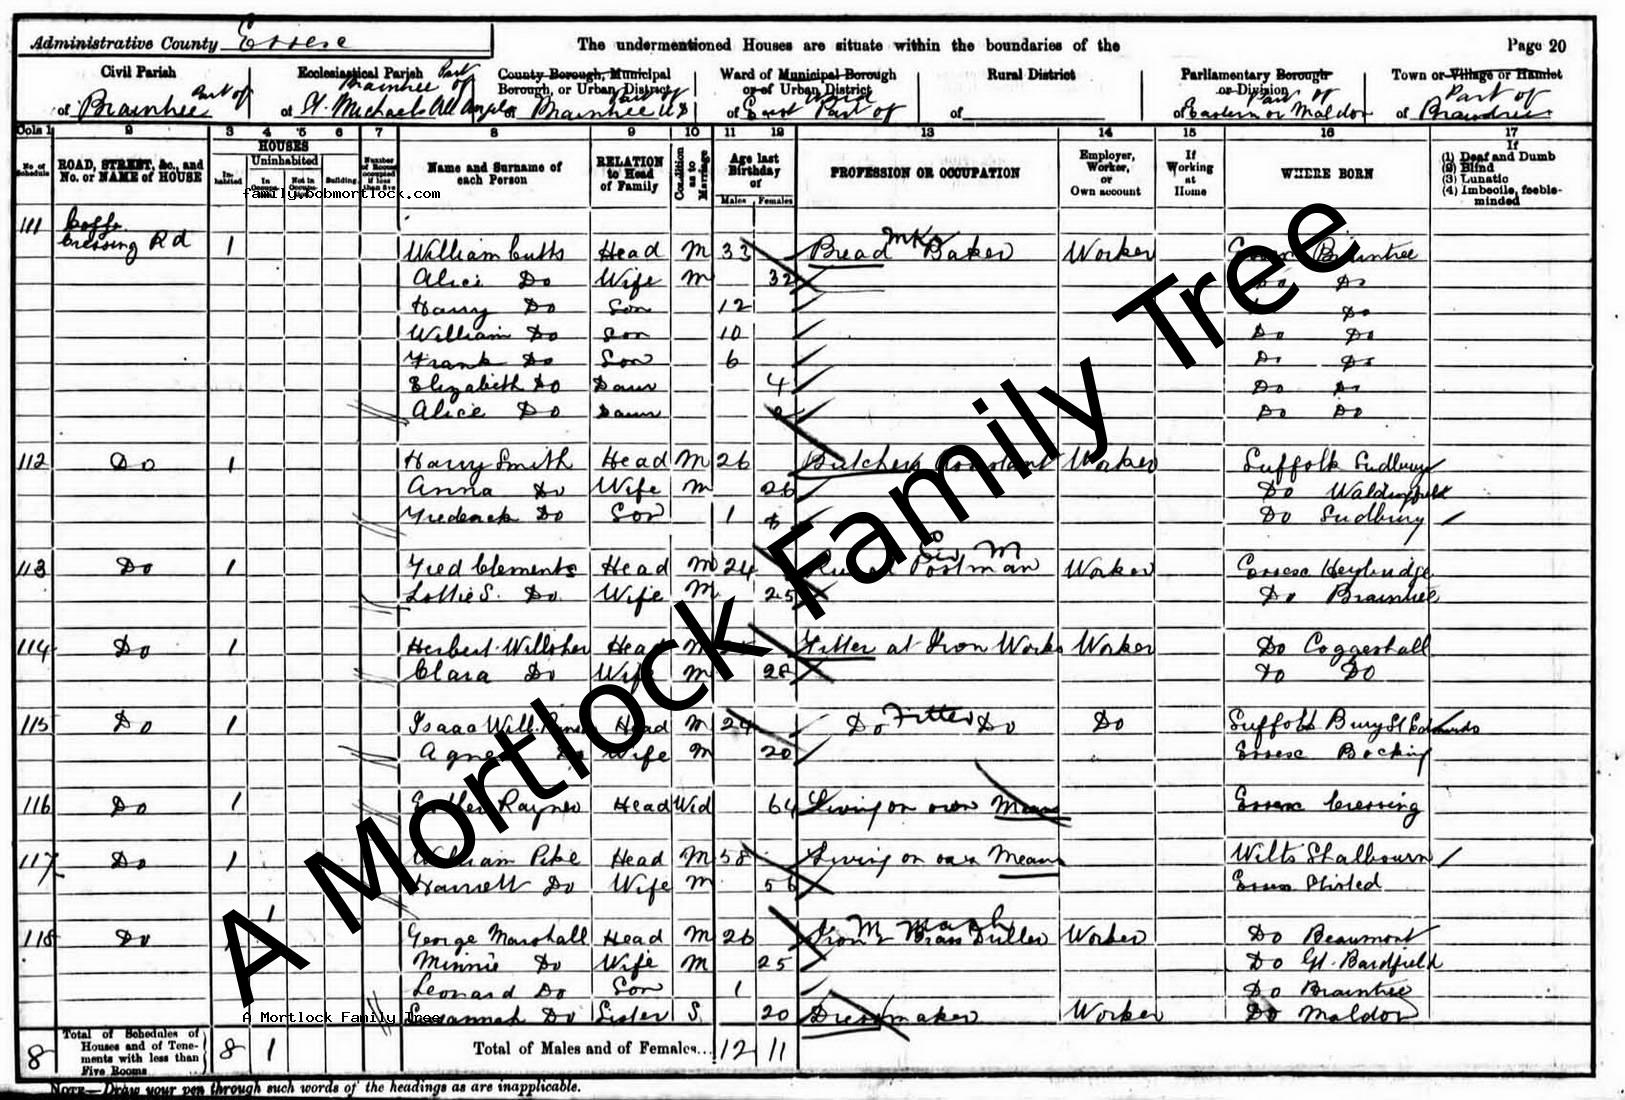 Administrative County Essex
The undermentioned Houses are situate within the boundaries of the
Page 20
Civil Parish
Ecclesiastical Parish
County Borough, Municipal Borough, or Urban District
Ward of Municipal Borough or of Urban District
Rural District
Parliamentary Borough or Division
Town or Village or Hamlet
of Braintree Part of
of St. Michael All Angels Part of Braintree
of Braintree U D Part of
of East Ward Part of
of
of Eastern or Maldon Part of
of Braintree Part of
Cols 1 2 3 4 5 6 7 8 9 10 11 12 13 14 15 16 17
No. of Schedule
ROAD, STREET, &c., and No. or NAME of HOUSE
HOUSES
Inhabited
Uninhabited
In Occupation
Not in Occupation
Building
Number of Rooms occupied if less than five
Name and Surname of each Person
RELATION to Head of Family
Condition as to Marriage
Age last Birthday of
Males Females
PROFESSION OR OCCUPATION
Employer, Worker, or Own account
If Working at Home
WHERE BORN
If
(1) Deaf and Dumb
(2) Blind
(3) Lunatic
(4) Imbecile, feeble-minded
family.bobmortlock.com
111 Cressing Rd 1 William Cutts Head M 33 Bread Baker Mkr Worker Essex Braintree
Alice Do Wife M 32 Do Do
Harry Do Son 12 Do
William Do Son 10 Do Do
Frank Do Son 6 Do Do
Elizabeth Do Daur 4 Do Do
Alice Do Daur Do Do
112 Do 1 Harry Smith Head M 26 Butchers Assistant Worker Suffolk Sudbury
Anna Do Wife M 26 Do Waldingfield
Frederick Do Son 1 Do Sudbury
113 Do 1 Fred Clements Head M 24 Rural Postman Worker Essex Heybridge
Lottie S. Do Wife M 25 Do Braintree
114 Do 1 Herbert Willsher Head M Fitter at Iron Works Worker Do Coggeshall
Clara Do Wife M 28 Do Do
115 Do 1 Isaac Will. Head M 24 Do Fitter Do Do Suffolk Bury St Edmunds
Agnes Do Wife M 20 Essex Bocking
116 Do 1 Esther Rayner Head Wid 64 Living on own Means Essex Cressing
117 Do 1 William Pike Head M 58 Living on own Means Wilts Shalbourn
Harriett Do Wife M 56 Essex Stisted
1
118 Do 1 George Marshall Head M 26 Iron & Brass Driller Worker Do Beaumont
Minnie Do Wife M 25 Do Gt. Bardfield
Leonard Do Son 1 Do Braintree
Savannah Do Sister S. 20 Dressmaker Worker Do Maldon
A Mortlock Family Tree
8 Total of Schedules of Houses and of Tenements with less than Five Rooms 8 1 Total of Males and of Females... 12 11
NOTE—Draw your pen through such words of the headings as are inapplicable.
A Mortlock Family Tree